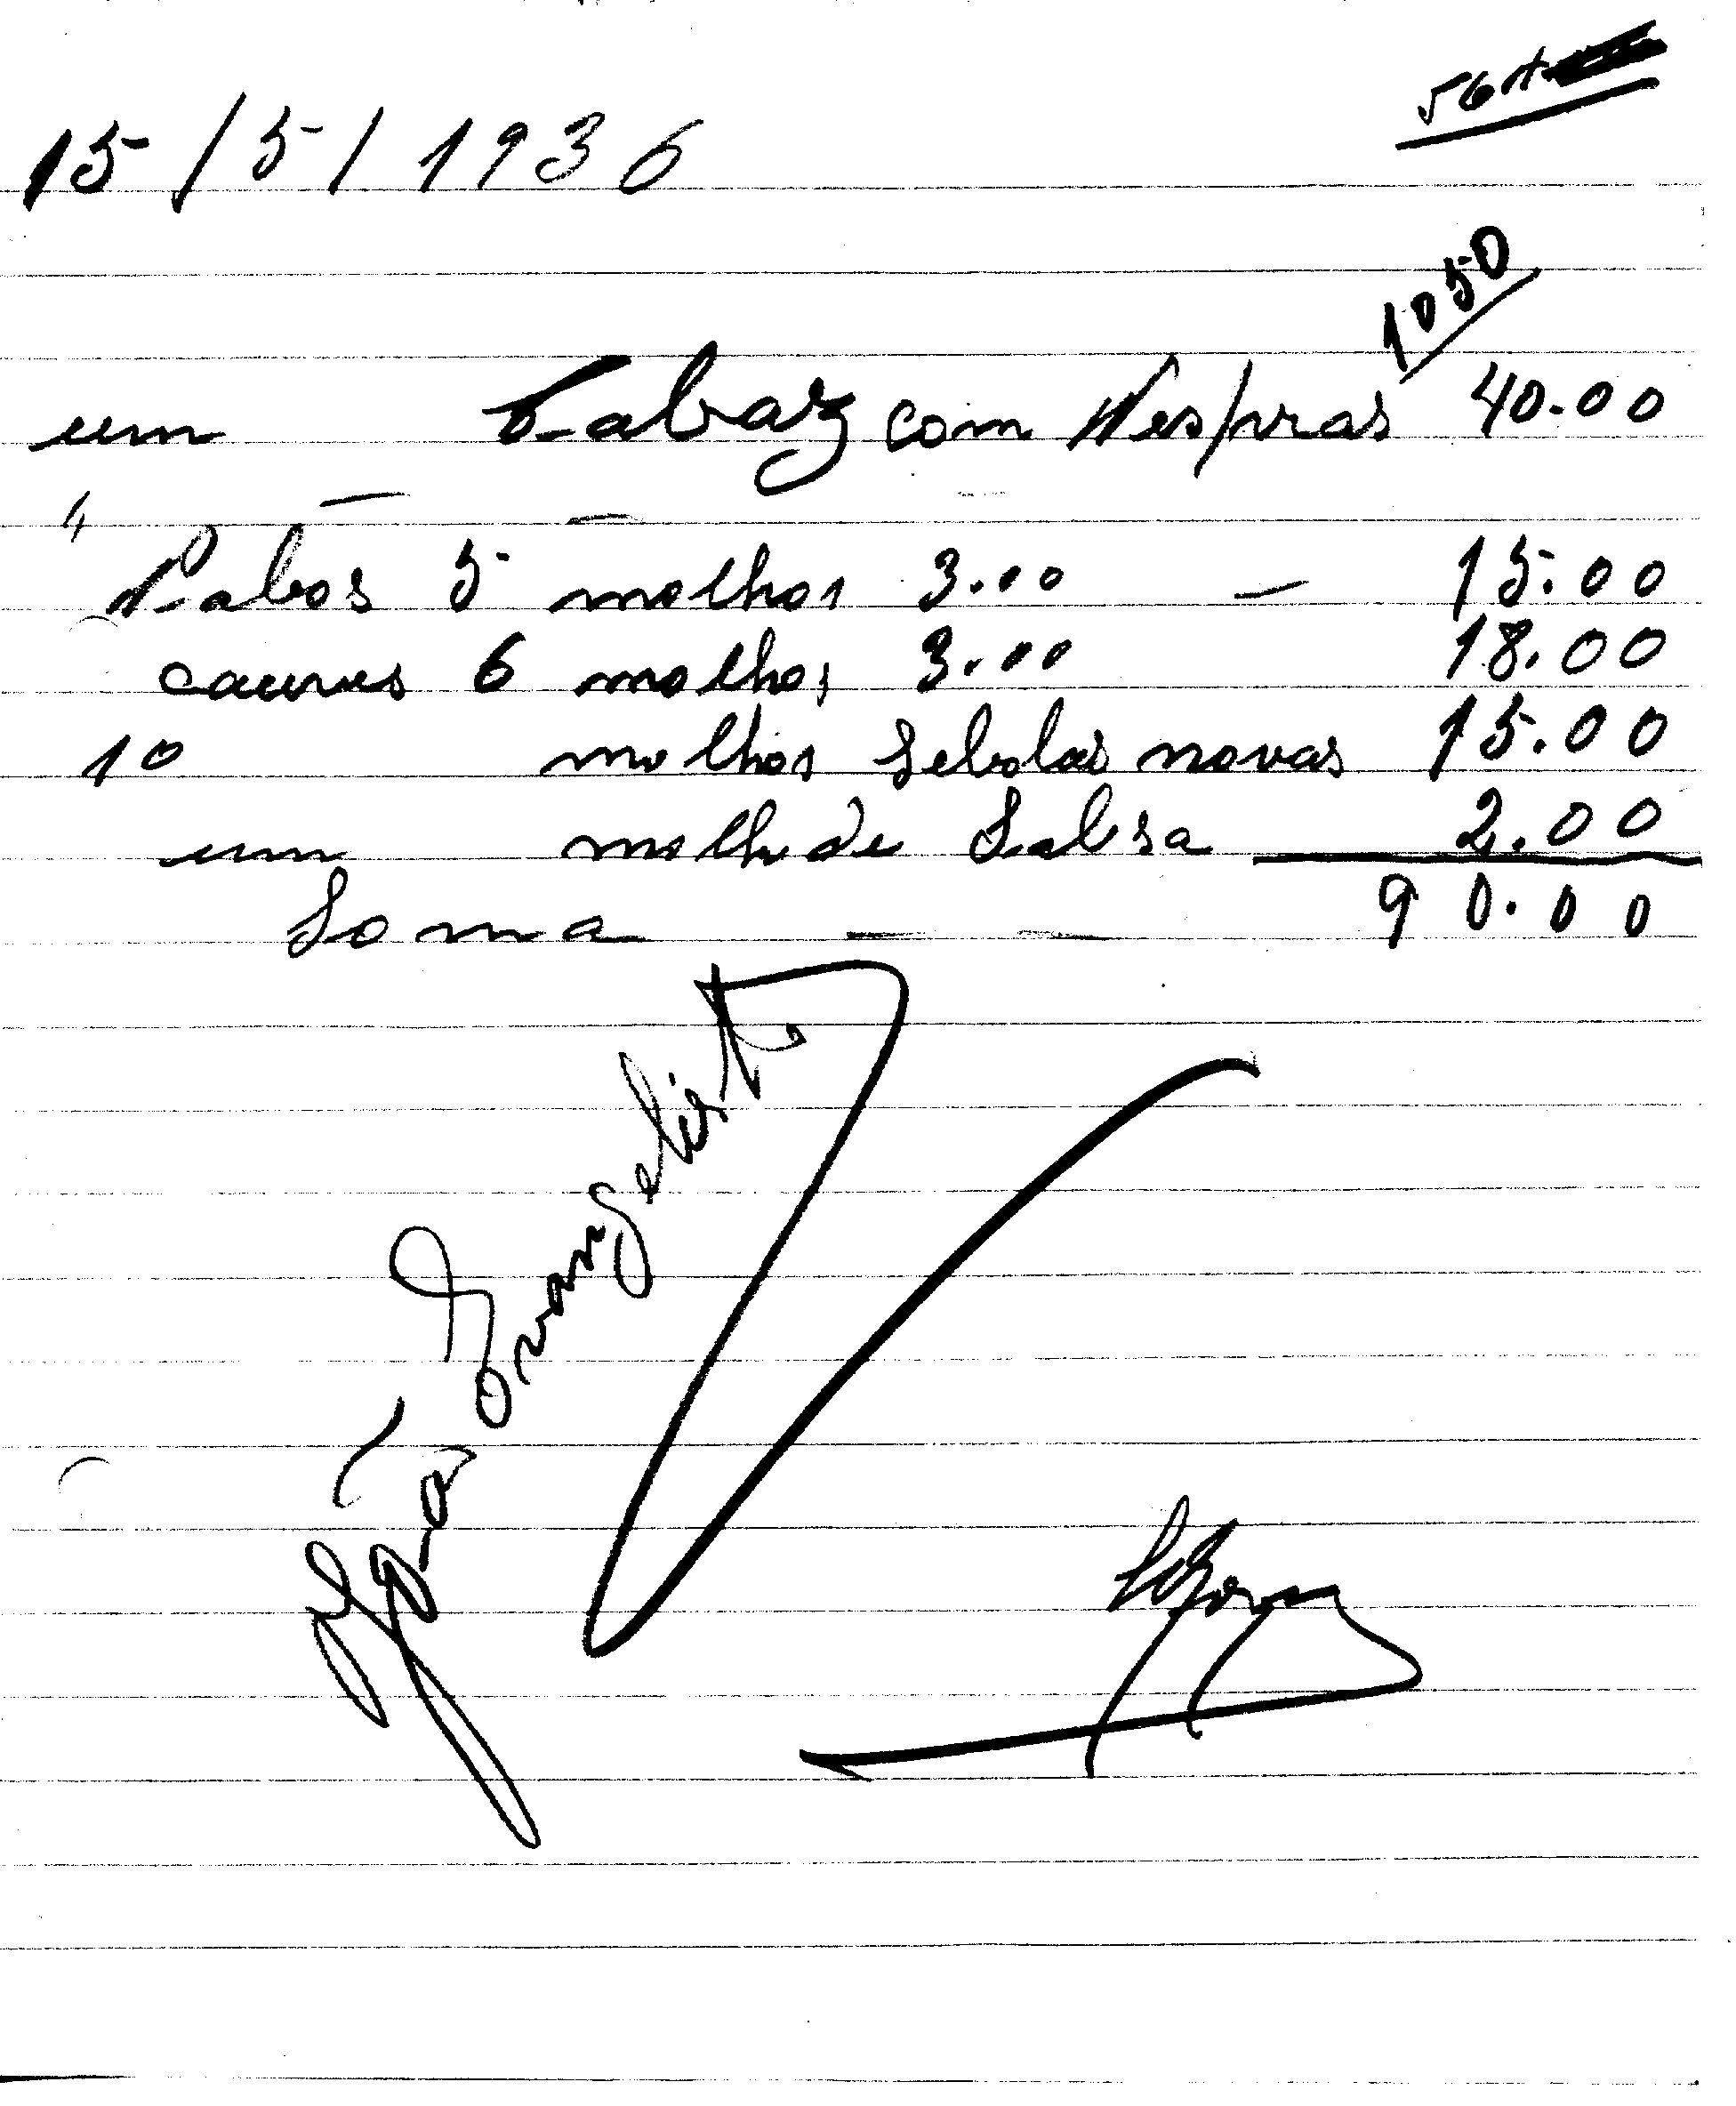 15/5/1936
1050
um Cabaz com Nespras 40.00
" — — —
Nabos 5 molhos 3.00 — 15.00
couves 6 molhos 3.00 18.00
10 molhos Sebolas novas 15.00
um molho de Salsa 2.00
Soma — — 90.00
João Evangelista